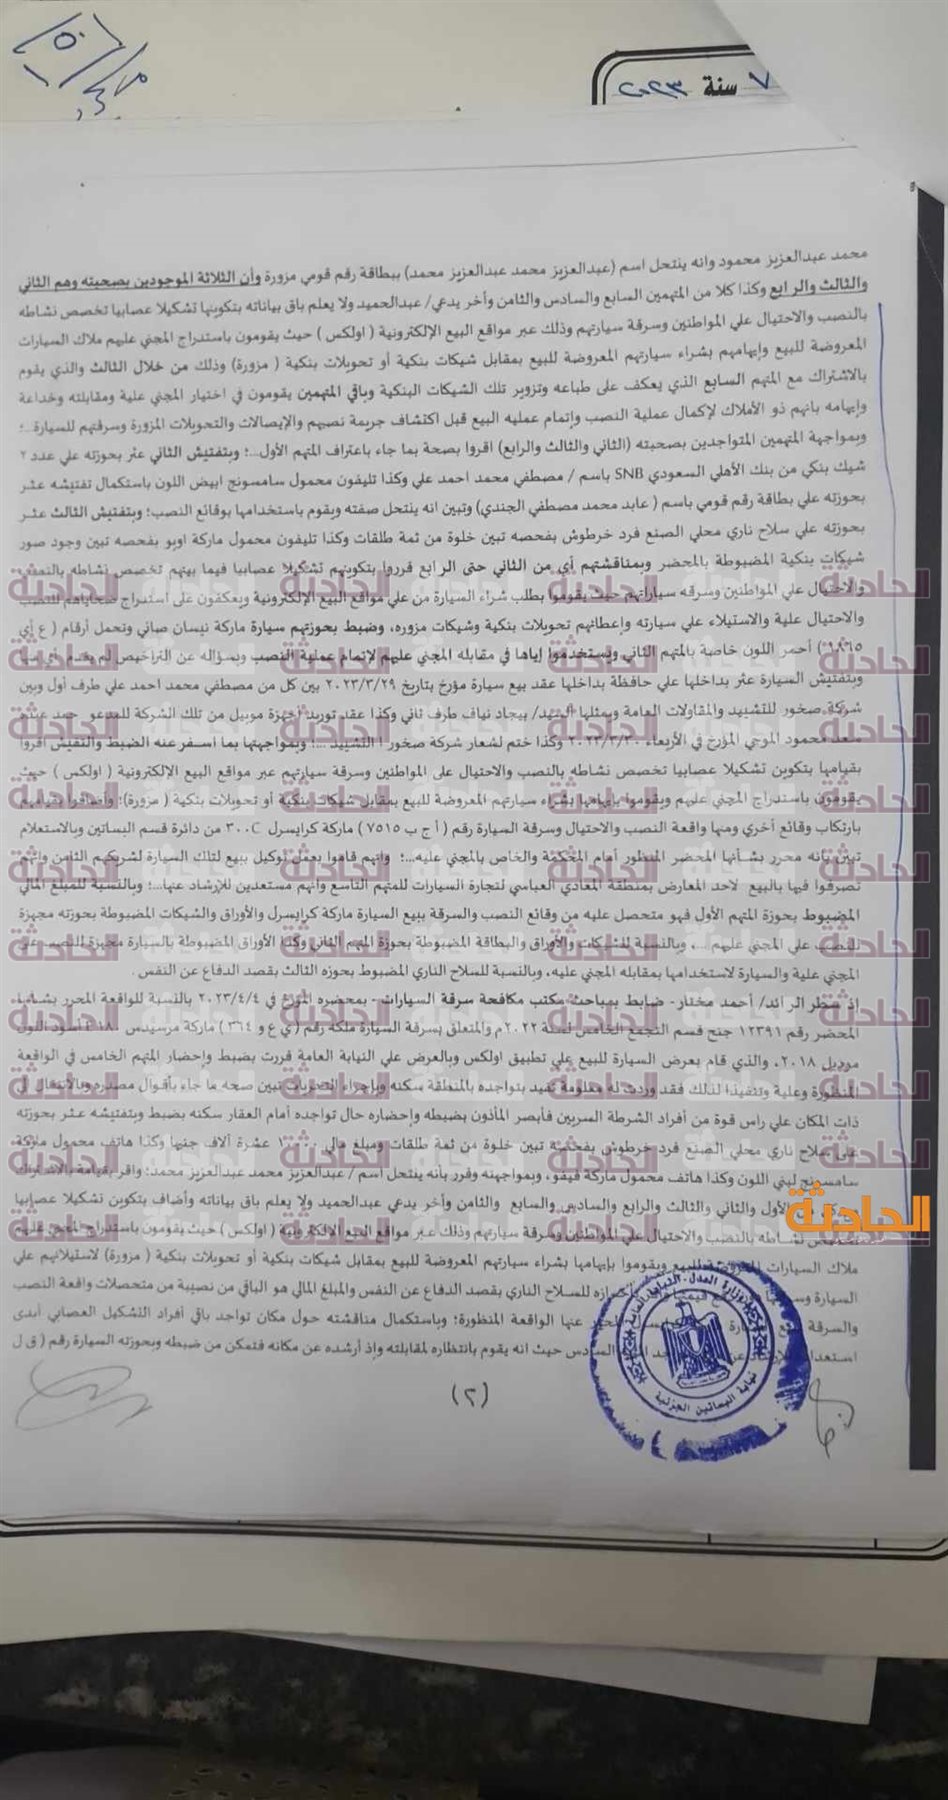 ٧ سنة ٢٠٢٣
محمد عبدالعزيز محمود وانه ينتحل اسم (عبدالعزيز محمد عبدالعزيز محمد) ببطاقة رقم قومي مزورة وأن الثلاثة الموجودين بصحبته وهم الثاني
والثالث والرابع وكذا كلا من المتهمين السابع والسادس والثامن وأخر يدعي/ عبدالحميد ولا يعلم باق بياناته بتكوينها تشكيلا عصابيا تخصص نشاطه
بالنصب والاحتيال علي المواطنين وسرقة سيارتهم وذلك عبر مواقع البيع الإلكترونية ( اولكس ) حيث يقومون باستدراج المجني عليهم ملاك السيارات
المعروضة للبيع وإيهامهم بشراء سيارتهم المعروضة للبيع بمقابل شيكات بنكية أو تحويلات بنكية ( مزورة) وذلك من خلال الثالث والذي يقوم
بالاشتراك مع المتهم السابع الذي يعكف على طباعه وتزوير تلك الشيكات البنكية وباقي المتهمين يقومون في اختيار المجني علية ومقابلته وخداعة
وإيهامه بانهم ذو الأملاك لإكمال عملية النصب وإتمام عمليه البيع قبل اكتشاف جريمة نصبهم والإيصالات والتحويلات المزورة وسرقتهم للسيارة..؛
وبمواجهة المتهمين المتواجدين بصحبته (الثاني والثالث والرابع) اقروا بصحة بما جاء باعتراف المتهم الأول...؛ وبتفتيش الثاني عثر بحوزته علي عدد ٢
شيك بنكي من بنك الأهلي السعودي SNB باسم / مصطفي محمد احمد علي وكذا تليفون محمول سامسونج ابيض اللون باستكمال تفتيشه عثر
بحوزته علي بطاقة رقم قومي باسم ( عابد محمد مصطفي الجندي) وتبين انه ينتحل صفته ويقوم باستخدامها بوقائع النصب؛ وبتفتيش الثالث عثر
بحوزته علي سلاح ناري محلي الصنع فرد خرطوش بفحصه تبين خلوة من ثمة طلقات وكذا تليفون محمول ماركة اوبو بفحصه تبين وجود صور
شيكات بنكية المضبوطة بالمحضر وبمناقشتهم أي من الثاني حتى الرابع قرروا بتكوينهم تشكيلا عصابيا فيما بينهم تخصص نشاطه بالنصب
والاحتيال علي المواطنين وسرقه سياراتهم حيث يقوموا بطلب شراء السيارة من علي مواقع البيع الإلكترونية ويعكفون على أستدراج ضحاياهم للنصب
والاحتيال علية والاستيلاء علي سيارته وإعطائهم تحويلات بنكية وشيكات مزوره، وضبط بحوزتهم سيارة ماركة نيسان صاني وتحمل أرقام ( ع أي
١٨٦٥) أحمر اللون خاصة بالمتهم الثاني ويستخدموا إياها في مقابله المجني عليهم لإتمام عملية النصب وبسؤاله عن التراخيص لم يقدم
وبتفتيش السيارة عثر بداخلها علي حافظة بداخلها عقد بيع سيارة مؤرخ بتاريخ ٢٠٢٣/٣/٢٩ بين كل من مصطفي محمد احمد علي طرف أول وبين
شركة صخور للتشييد والمقاولات العامة ويمثلها السيد/ بيجاد نياف طرف ثاني وكذا عقد توريد أجهزة موبيل من تلك الشركة للمدعو
سعد محمود الموجي المؤرخ في الأربعاء ٢٠٢٣/٣/٢٠ وكذا ختم لشعار شركة صخور التشييد ...؛ وبمواجهتها بما اسفر عنه الضبط والتفيش أقروا
بقيامها بتكوين تشكيلا عصابيا تخصص نشاطه بالنصب والاحتيال على المواطنين وسرقة سيارتهم عبر مواقع البيع الإلكترونية ( اولكس ) حيث
يقومون باستدراج المجني عليهم ويقوموا بإيهامها بشراء سيارتهم المعروضة للبيع بمقابل شيكات بنكية أو تحويلات بنكية ( مزورة)؛ وأضافوا بقيامهم
بارتكاب وقائع أخري ومنها واقعة النصب والاحتيال وسرقة السيارة رقم ( أ ج ب ٧٥١٥ ) ماركة كرايسرل ٣٠٠C من دائرة قسم البساتين وبالاستعلام
تبين بانه محرر بشأنها المحضر المنظور أمام المحكمة والخاص بالمجني عليه...؛ وانهم قاموا بعمل توكيل بيع لتلك السيارة لشريكهم الثامن وانهم
تصرفوا فيها بالبيع لاحد المعارض بمنطقة المعادي العباسي لتجارة السيارات للمتهم التاسع وانهم مستعدين للإرشاد عنها...؛ وبالنسبة للمبلغ المالي
المضبوط بحوزة المتهم الأول فهو متحصل عليه من وقائع النصب والسرقة ببيع السيارة ماركة كرايسرل والأوراق والشيكات المضبوطة بحوزته مجهزة
للنصب على المجني عليهم ...، وبالنسبة للشيكات والأوراق والبطاقة المضبوطة بحوزة المتهم الثاني وكذا الأوراق المضبوطة بالسيارة مجهزة للنصب على
المجني علية والسيارة لاستخدامها بمقابله المجني عليه، وبالنسبة للسلاح الناري المضبوط بحوزه الثالث بقصد الدفاع عن النفس .
إذ سطر الرائد/ أحمد مختار- ضابط بمباحث مكتب مكافحة سرقة السيارات - بمحضره المؤرخ في ٢٠٢٣/٤/٤ بالنسبة للواقعة المحرر بشأنها
المحضر رقم ١٢٣٩١ جنح قسم التجمع الخامس لسنة ٢٠٢٢م والمتعلق بسرقة السيارة ملكه رقم ( ي ع و ٣٦٤ ) ماركة مرسيدس ١٨٠ E أسود اللون
موديل ٢٠١٨، والذي قام بعرض السيارة للبيع علي تطبيق اولكس وبالعرض علي النيابة العامة قررت بضبط وإحضار المتهم الخامس في الواقعة
المنظورة وعلية وتنفيذا لذلك فقد وردت له معلومة تفيد بتواجده بالمنطقة سكنه وبإجراء التحريات تبين صحه ما جاء بأقوال مصدره وبالانتقال الى
ذات المكان علي راس قوة من أفراد الشرطة السريين فأبصر المأذون بضبطه وإحضاره حال تواجده أمام العقار سكنه بضبط وبتفتيشه عثر بحوزته
على سلاح ناري محلي الصنع فرد خرطوش بفحصه تبين خلوة من ثمة طلقات ومبلغ مالي ١٠٠٠٠ عشرة آلاف جنيها وكذا هاتف محمول ماركة
سامسونج لبني اللون وكذا هاتف محمول ماركة فيفو، وبمواجهته وقرر بأنه ينتحل اسم / عبدالعزيز محمد عبدالعزيز محمد؛ واقر بقيامة بالاشتراك
الأول والثاني والثالث والرابع والسادس والسابع والثامن وأخر يدعي عبدالحميد ولا يعلم باق بياناته وأضاف بتكوين تشكيلا عصابيا
نشاطه بالنصب والاحتيال علي المواطنين وسرقة سيارتهم وذلك عبر مواقع البيع الإلكترونية ( اولكس ) حيث يقومون باستدراج المجني عليهم
ملاك السيارات المعروضة للبيع ويقوموا بإيهامها بشراء سيارتهم المعروضة للبيع بمقابل شيكات بنكية أو تحويلات بنكية ( مزورة) لاستيلائهم علي
السيارة للسلاح الناري بقصد الدفاع عن النفس والمبلغ المالي هو الباقي من نصيبة من متحصلات واقعة النصب
والسرقة عنها الواقعة المنظورة؛ وباستكمال مناقشته حول مكان تواجد باقي أفراد التشكيل العصابي أبدى
السادس حيث انه يقوم بانتظاره لمقابلته وإذ أرشده عن مكانه فتمكن من ضبطه وبحوزته السيارة رقم ( ق ل
(٢)
وزارة العدل - النيابة العامة
نيابة البساتين الجزئية
الحادثة